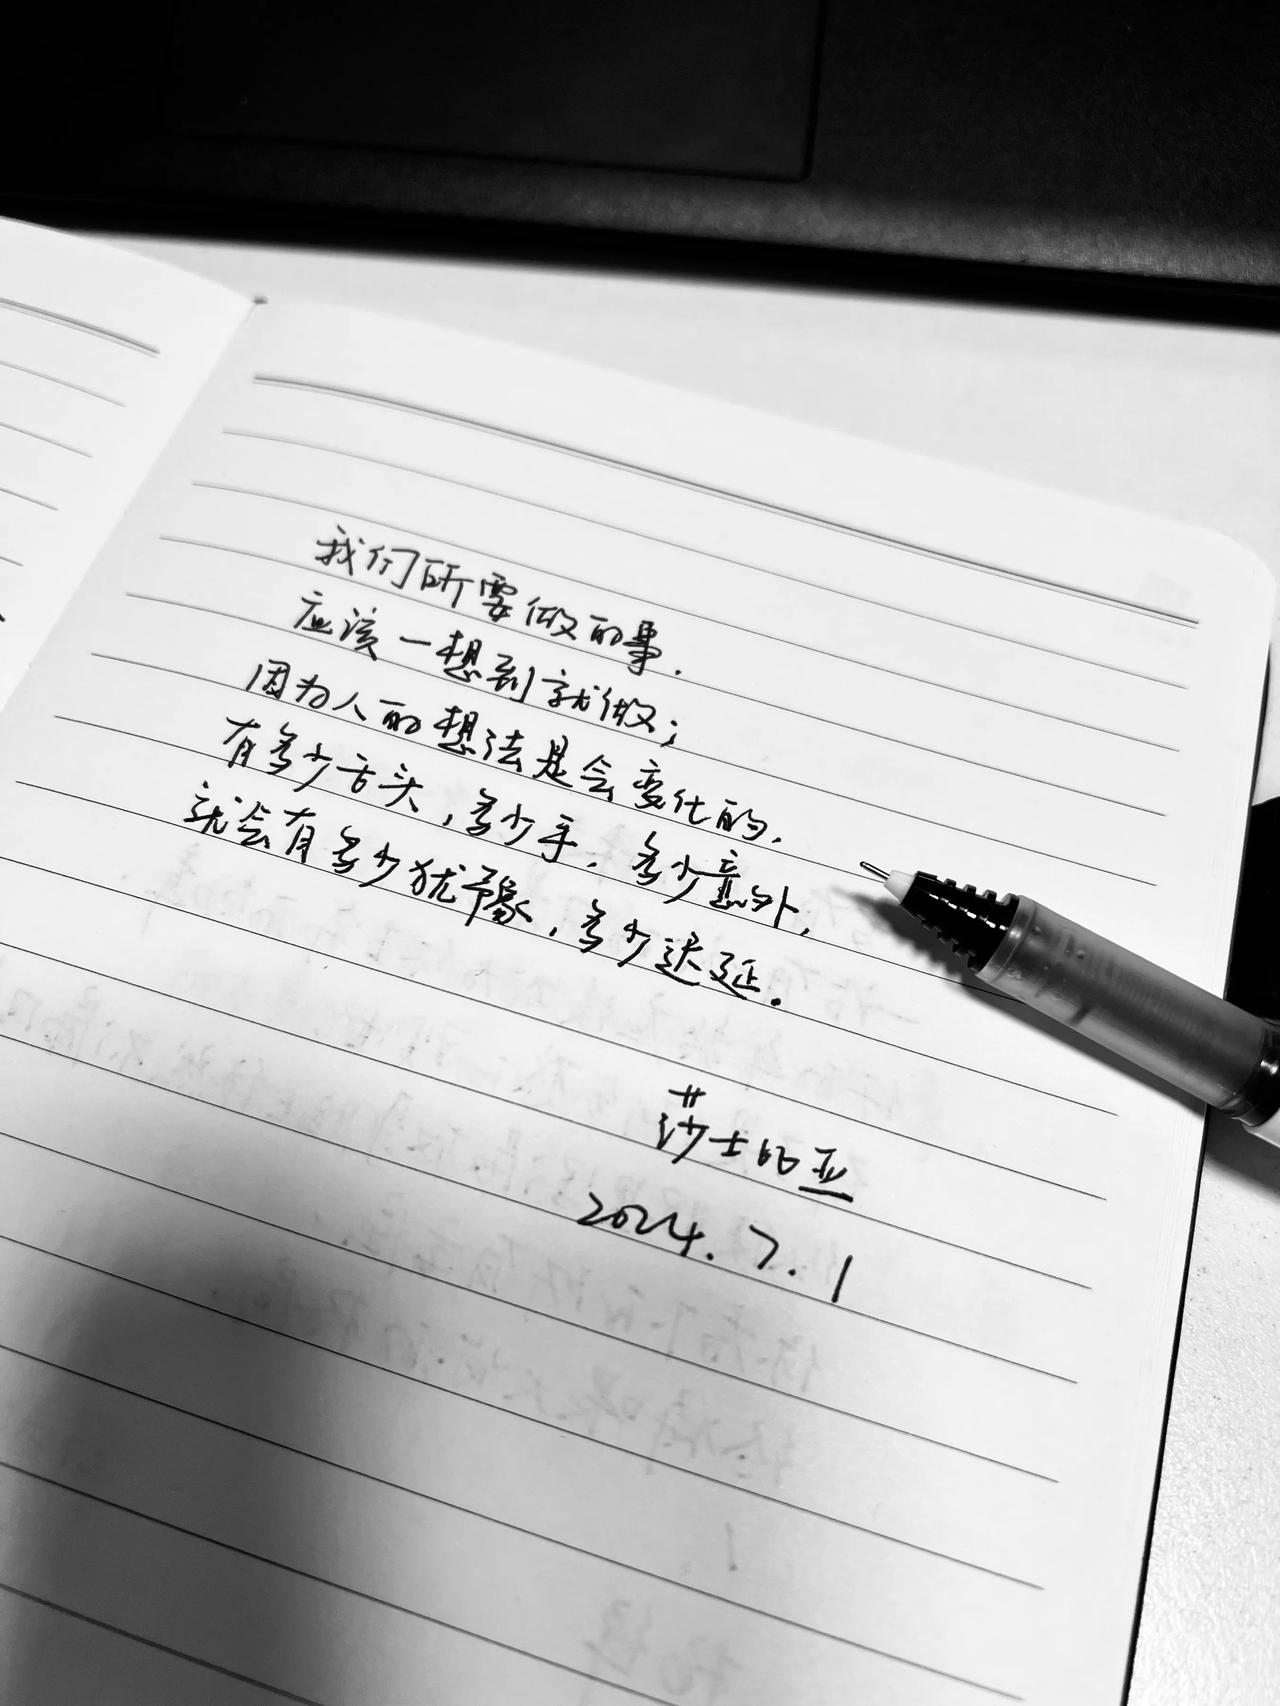 我们所要做的事，
应该一想到就做；
因为人的想法是会变化的，
有多少舌头，多少手，多少意外，
就会有多少犹豫，多少迟延。
莎士比亚
2024.7.1